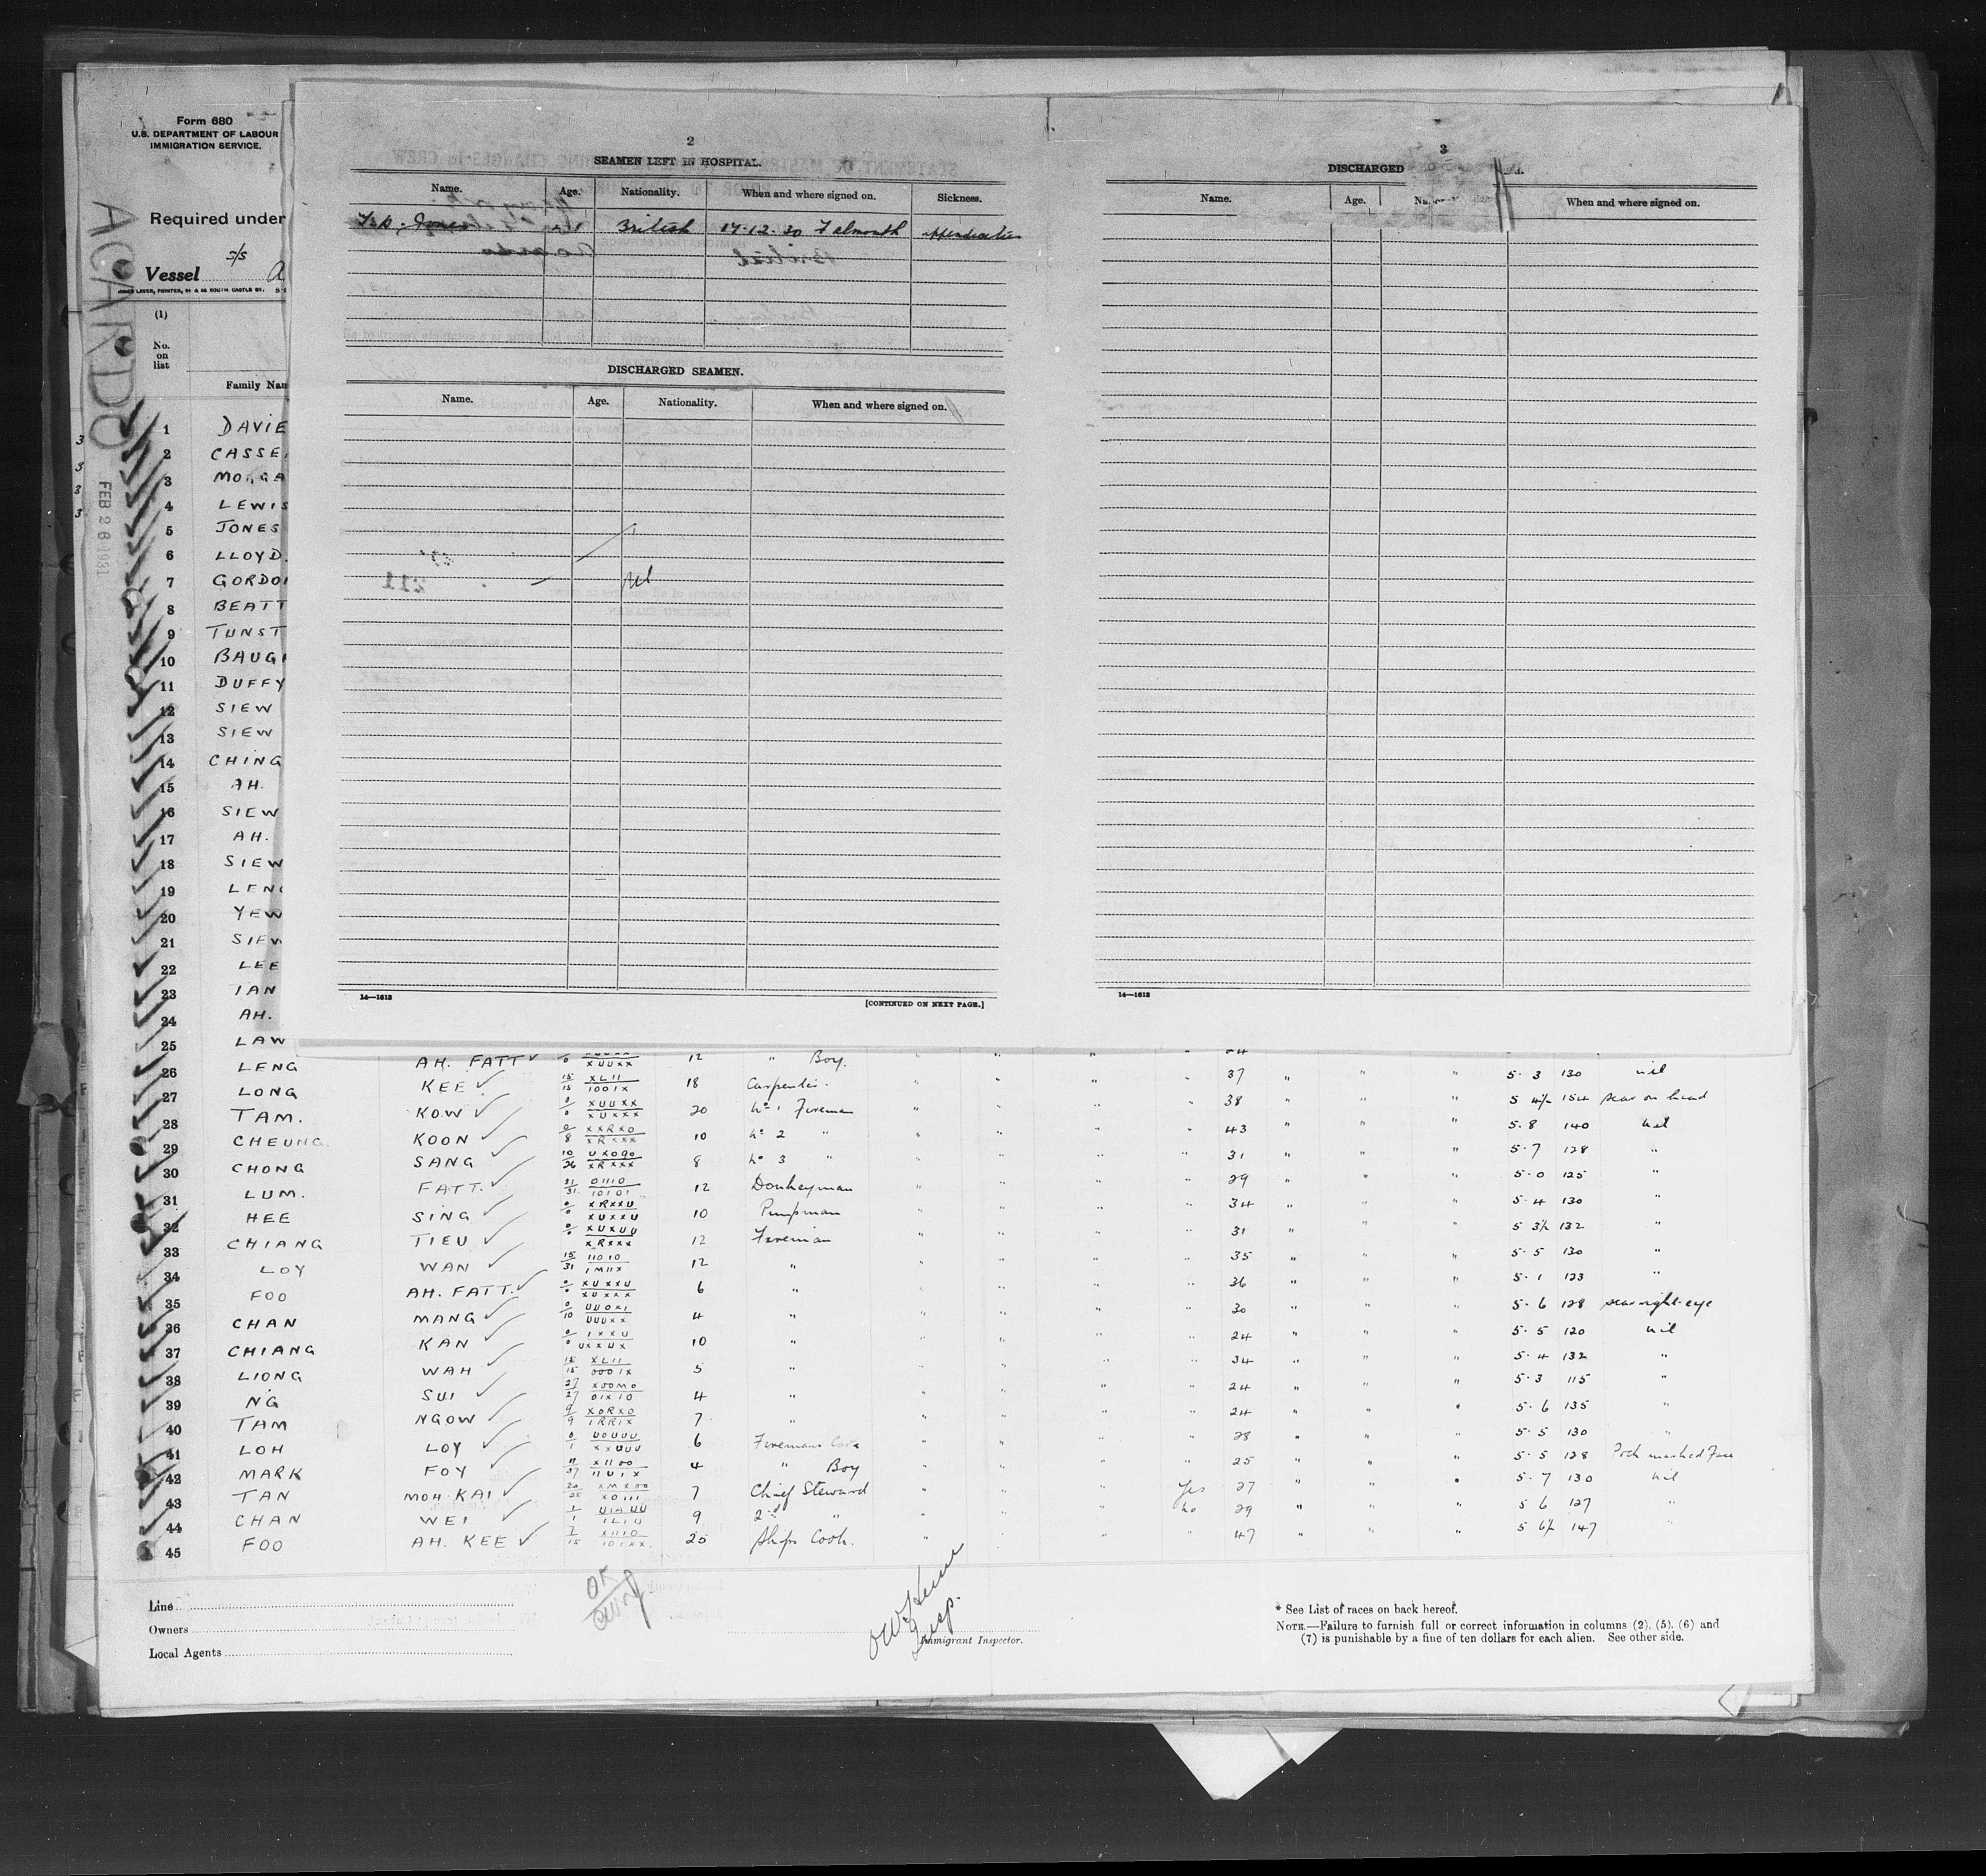 Form 680
U.S. DEPARTMENT OF LABOUR
IMMIGRATION SERVICE.
Required under
s/s
Vessel A
ACARDO
FEB 26 1931
(1)
No. on list
Family Nam
1 DAVIE
2 CASSE
3 MORGA
4 LEWIS
5 JONES
6 LLOYD.
7 GORDON
8 BEATT
9 TUNST
10 BAUG
11 DUFFY
12 SIEW
13 SIEW
14 CHING
15 AH.
16 SIEW
17 AH.
18 SIEW
19 LENG
20 YEW
21 SIEW
22 LEE
23 IAN
24 AH.
25 LAW
2
SEAMEN LEFT IN HOSPITAL.
Name. Age. Nationality. When and where signed on. Sickness.
Jones British 17-12-30 Falmouth appendicitis
DISCHARGED SEAMEN.
Name. Age. Nationality. When and where signed on.
Nil
14—1613 [CONTINUED ON NEXT PAGE.]
3
DISCHARGED
Name. Age. When and where signed on.
14—1613
26 LENG AH. FATT 12 " Boy. " " " "
27 LONG KEE 15/15 XL11/1001X 18 Carpenter. " " " " 37 " " " 5·3 130 nil
28 TAM. KOW 0/0 XUUXX/XUXXX 20 No 1 Fireman " " " " 38 " " " 5 4½ 154 scar on head
29 CHEUNG KOON 0/8 XXRXO/XRXXX 10 No 2 " " " " " 43 " " " 5·8 140 nil
30 CHONG SANG 10/26 8 No 3 " " " " " 31 " " " 5·7 128 "
31 LUM. FATT. 31/31 01110/10101 12 Donkeyman " " " " 29 " " " 5·0 125 "
32 HEE SING 0/0 XRXXU/XUXXU 10 Pumpman " " " " 34 " " " 5·4 130 "
33 CHIANG TIEU 0/0 XUXUU/XRXXX 12 Fireman " " " " 31 " " " 5 3½ 132 "
34 LOY WAN 15/31 11010/1M11X 12 " " " " " 35 " " " 5·5 130 "
35 FOO AH. FATT. 0/0 XUXXU/XUXXX 6 " " " " " 36 " " " 5·1 123 "
36 CHAN MANG 0/10 UUOXI/UUUXX 4 " " " " " 30 " " " 5·6 128 scar right eye
37 CHIANG KAN 0/0 1XXU/UXXUX 10 " " " " " 24 " " " 5·5 120 nil
38 LIONG WAH 15/15 XL11/0001X 5 " " " " " 34 " " " 5·4 132 "
39 NG SUI 27/27 XOOMO/01X10 4 " " " " " 24 " " " 5·3 115 "
40 TAM NGOW 9/9 XORXO/1RR1X 7 " " " " " 24 " " " 5·6 135 "
41 LOH LOY 0/1 UOUUU/XXUUU 6 Firemans Cook " " " " 28 " " " 5·5 130 "
42 MARK FOY 11/27 X1100/11U1X 4 " Boy " " " " 25 " " " 5·5 128 Pock marked Face
43 TAN MOH KAI 20/25 XMXOO/XO111 7 Chief Steward " " " Yes 27 " " " 5·7 130 nil
44 CHAN WEI 1/1 9 2nd " " " " No 29 " " " 5 6 127 "
45 FOO AH. KEE 25 Ships Cook. " " " " 47 " " " 5 6½ 147 "
Line
Owners
Local Agents
OK
Insp.
Immigrant Inspector.
* See List of races on back hereof.
NOTE.—Failure to furnish full or correct information in columns (2), (5), (6) and
(7) is punishable by a fine of ten dollars for each alien. See other side.